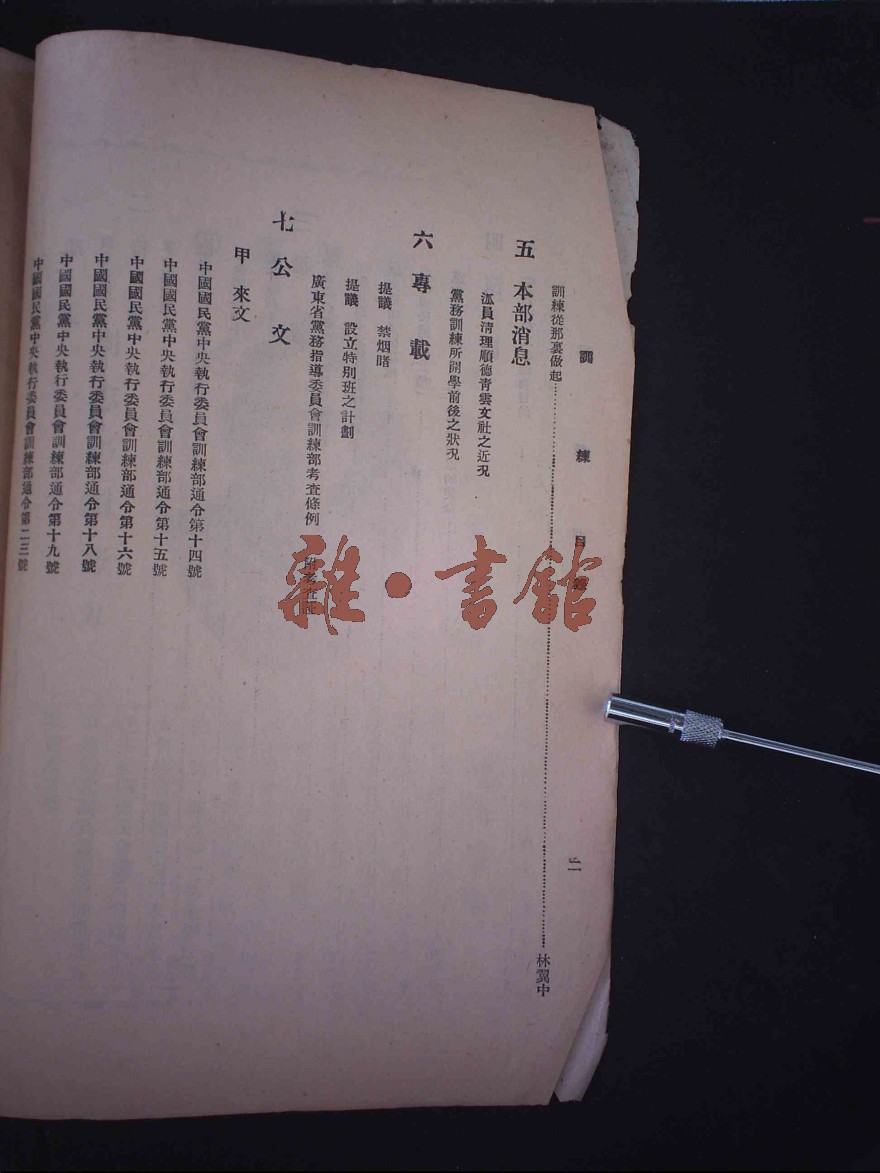 訓練目錄 二
訓練從那裏做起 林翼中
五 本部消息
派員清理順德青雲文社之近況
黨務訓練所開學前後之狀況
六 專載
提議 禁烟賭
提議 設立特別班之計劃
廣東省黨務指導委員會訓練部考查條例 附考查証
七 公文
甲 來文
中國國民黨中央執行委員會訓練部通令第十四號
中國國民黨中央執行委員會訓練部通令第十五號
中國國民黨中央執行委員會訓練部通令第十六號
中國國民黨中央執行委員會訓練部通令第十八號
中國國民黨中央執行委員會訓練部通令第十九號
中國國民黨中央執行委員會訓練部通令第二三號
雜·書館